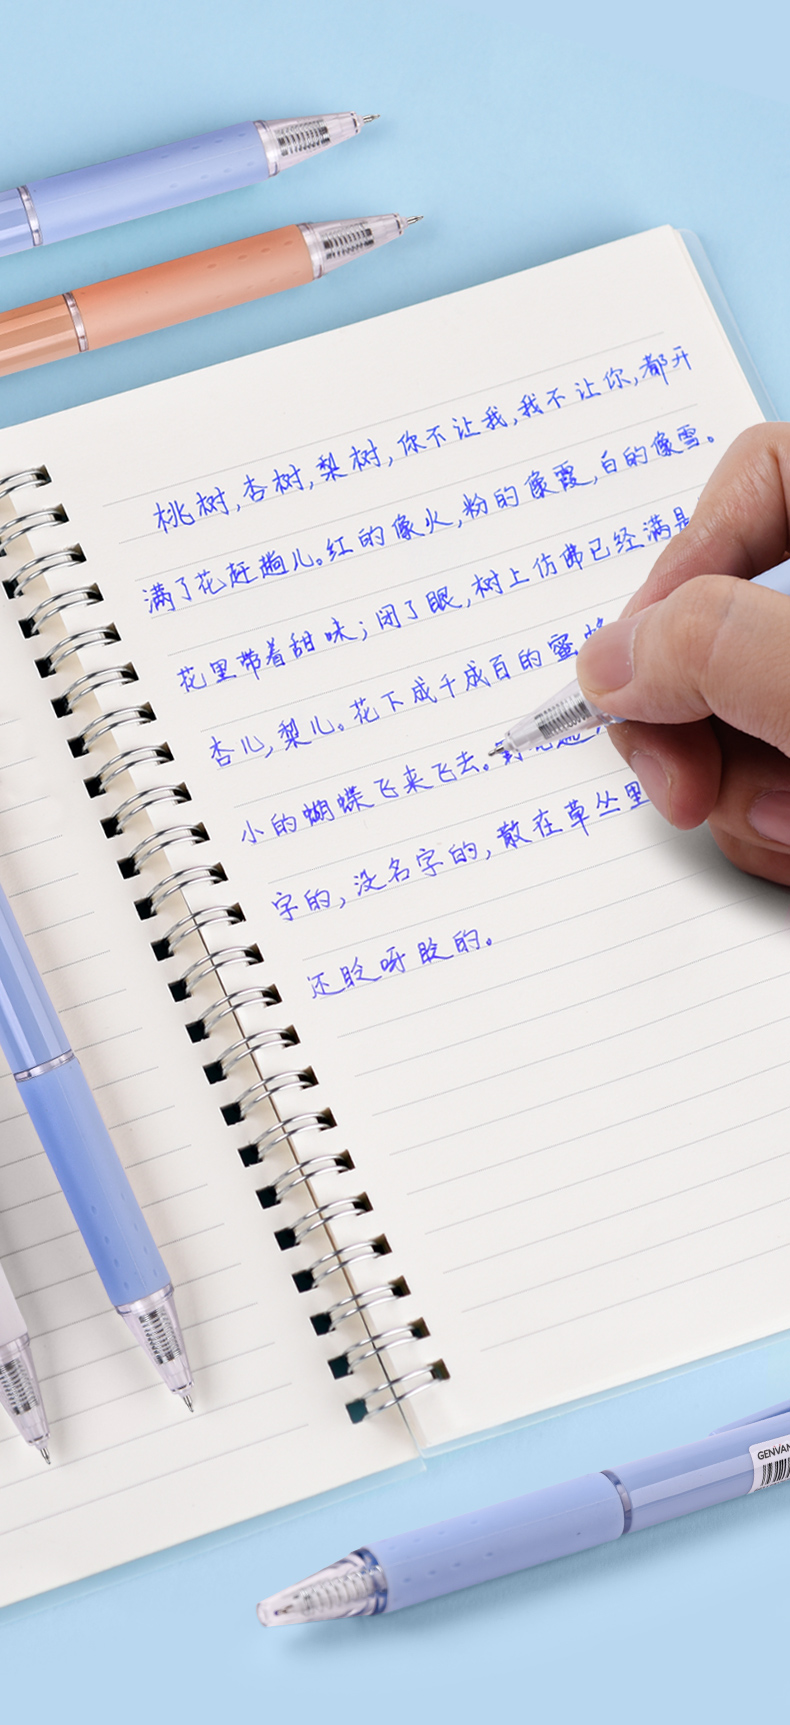 桃树,杏树,梨树,你不让我,我不让你,都开
满了花赶趟儿。红的像火,粉的像霞,白的像雪。
花里带着甜味;闭了眼,树上仿佛已经满是
杏儿,梨儿。花下成千成百的蜜
小的蝴蝶飞来飞去。
字的,没名字的,散在草丛里
还眨呀眨的。
GENVAN